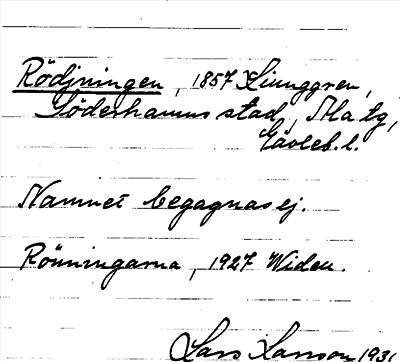 Rödjningen, 1857 Ljunggren,
Söderhamns stad, Ala tg,
Gävleb. l.
Namnet begagnas ej.
Rönningarna, 1927 Widen.
Lars Larsson 1931